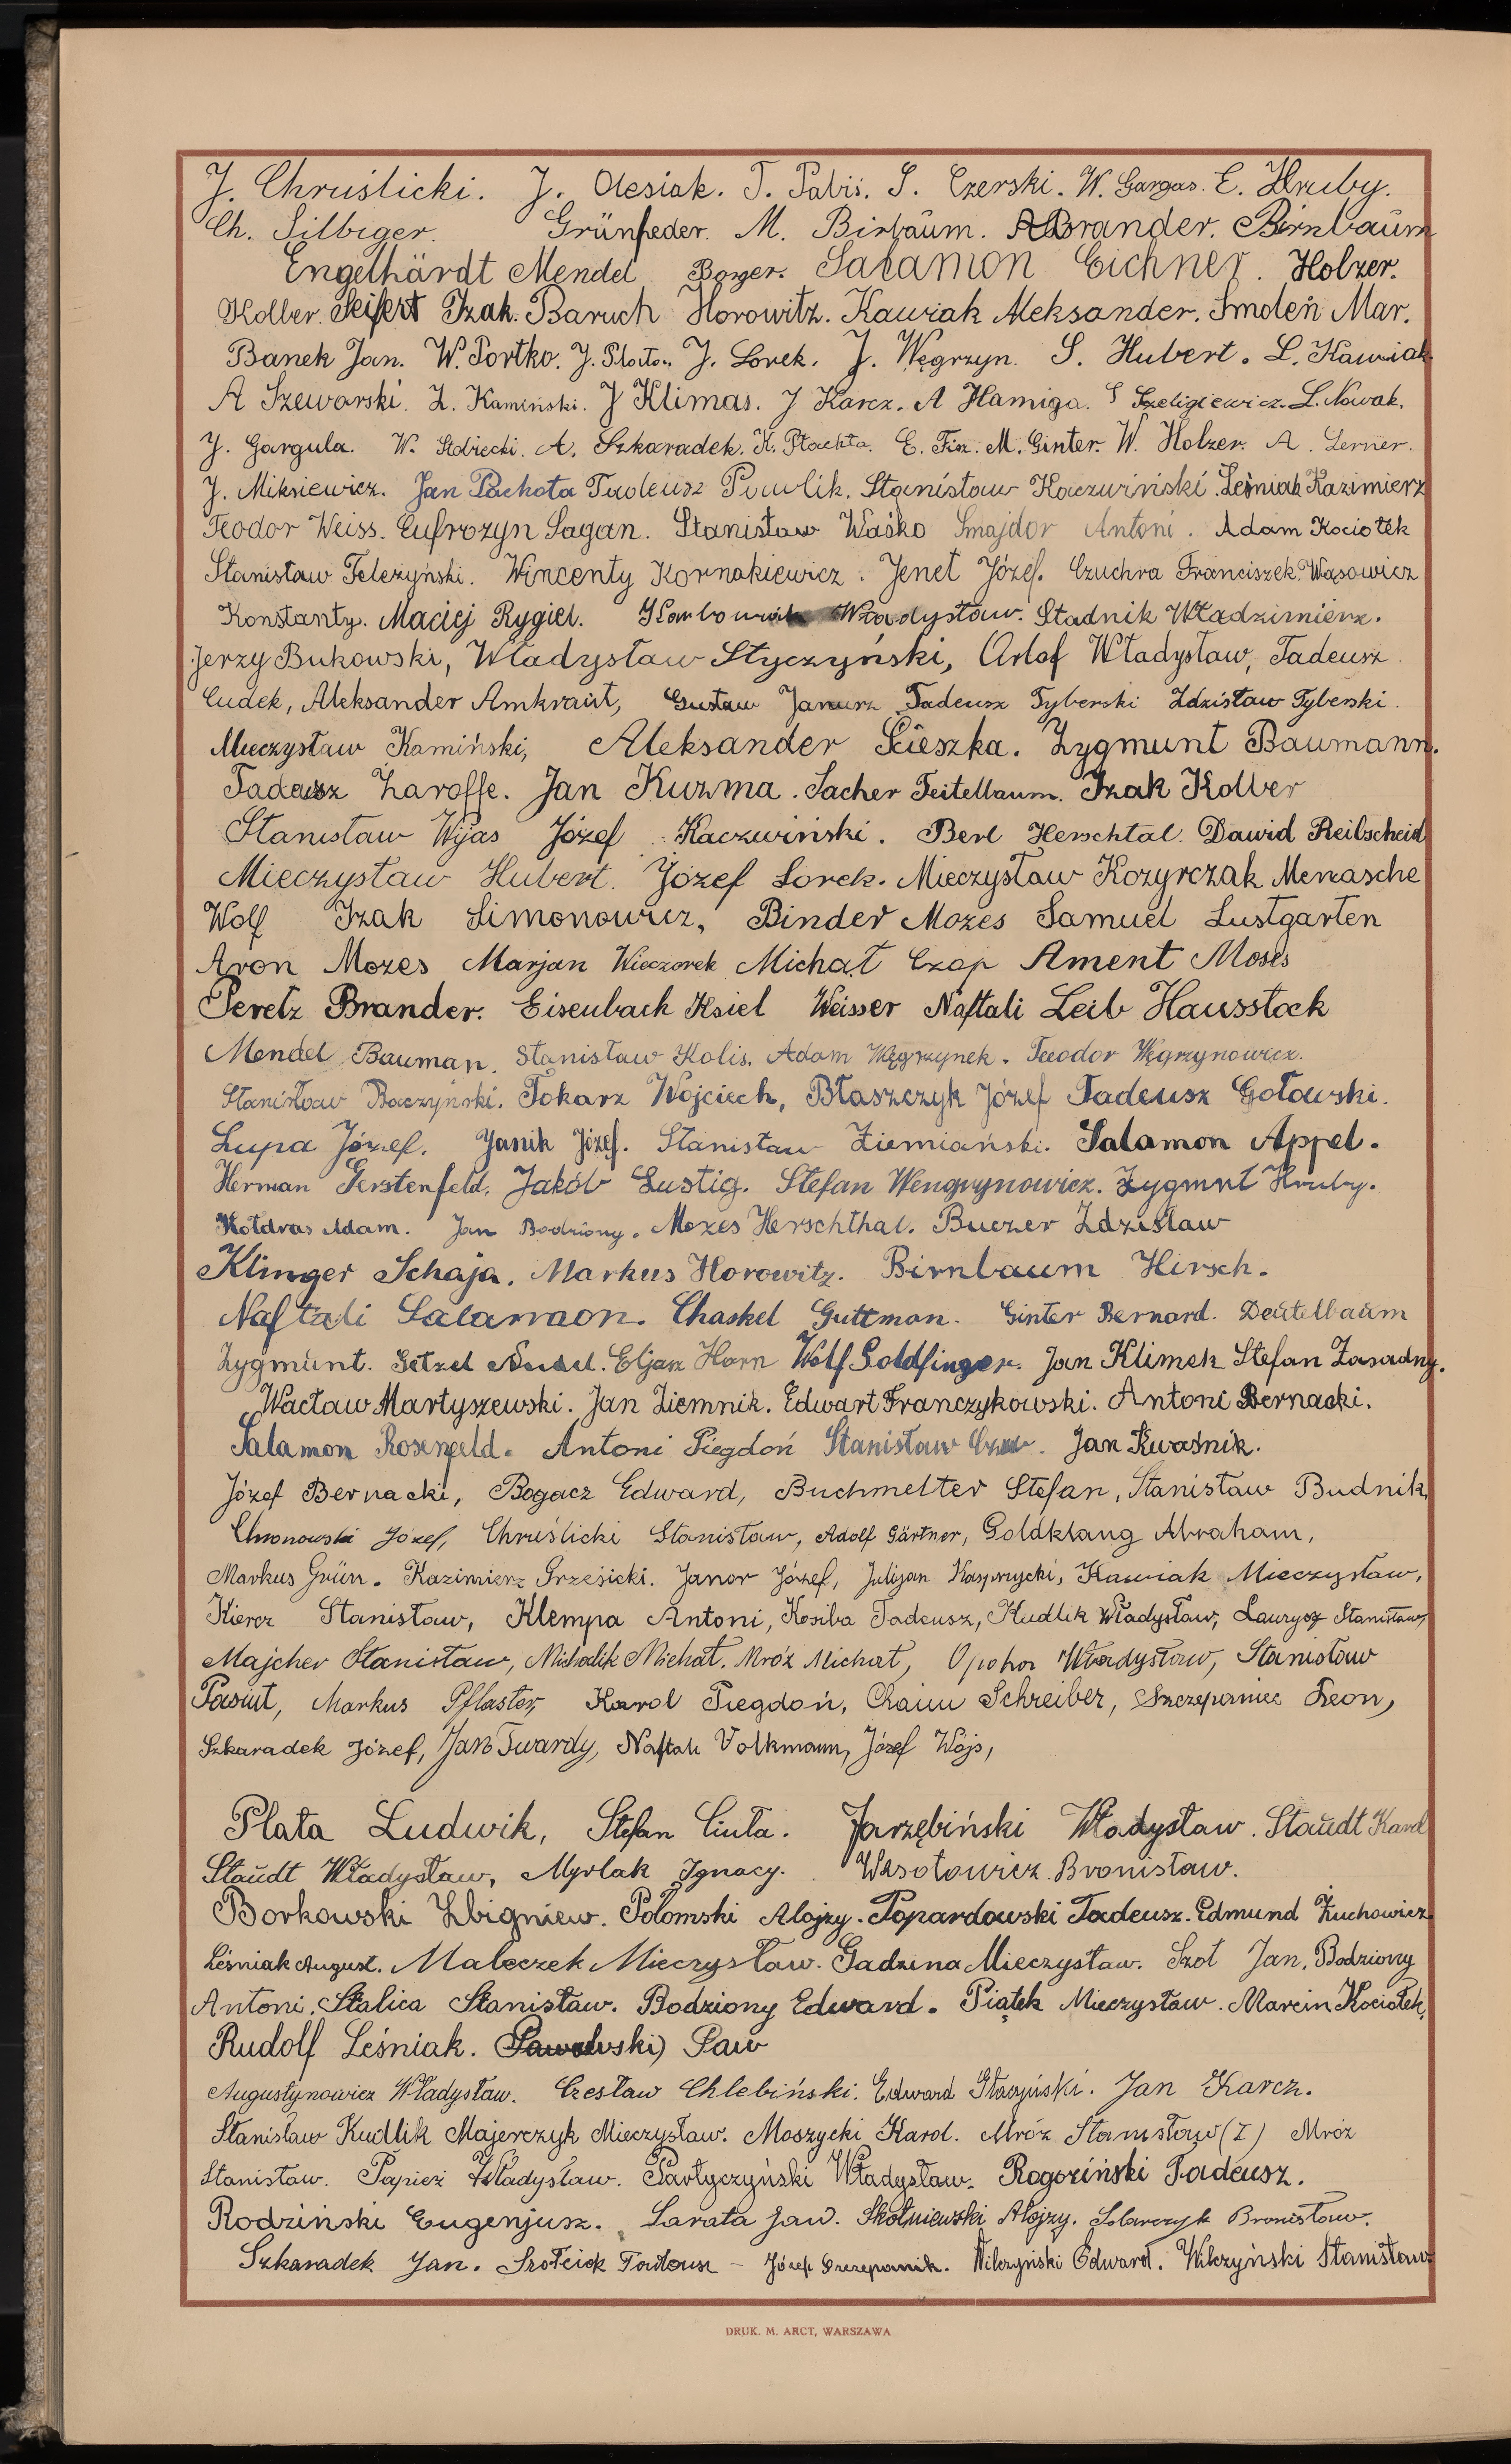 J. Chruślicki. J. Olesiak. T. Pabiś. S. Czerski. W. Gargas. E. Hruby.
Ch. Silbiger. Grünfeder. M. Birbaum. A Brander. Birnbaum
Engelhärdt Mendel Borger. Salamon Eichner. Holzer.
Kolber. Seifert Izak. Baruch Horowitz. Kawiak Aleksander. Smoleń Mar.
Banek Jan. W. Portko. J. Lorek. J. Węgrzyn. S. Hubert. L. Kawiak
A Szewarski. Z. Kamiński. J Klimas. J Karcz. A Hamiga. S Szeligiewicz. L. Nowak.
J. Gargula. W. A. Szkaradek. K. Płachta. E. M. Ginter. W. Holzer. A. Lerner.
J. Miksiewicz. Jan Pachota Tadeusz Pawlik. Stanisław Kaczwiński. Leśniak Kazimierz
Teodor Weiss. Eufrozyn Sagan. Stanisław Waśko Smajdor Antoni. Adam Kociołek
Stanisław Teleżyński. Wincenty Kornakiewicz. Jenet Józef. Czuchra Franciszek. Wąsowicz
Konstanty. Maciej Rygiel. Władysław. Stadnik Władzimierz.
Jerzy Bukowski, Władysław Styczyński, Orlof Władysław, Tadeusz
Cudek, Aleksander Amkraut, Gustaw Janurz Tadeusz Tyberski Zdzisław Tyberski.
Mieczysław Kamiński, Aleksander Ścieszka. Zygmunt Baumann.
Tadeusz Zaroffe. Jan Kuzma. Sacher Teitelbaum. Izak Kolber
Stanisław Wyjas Józef Kaczwiński. Berl Herschtal. Dawid Reibscheid
Mieczysław Hubert. Józef Lorek. Mieczysław Kozyrczak Menasche
Wolf Izak Simonowicz, Binder Mozes Samuel Lustgarten
Aron Mozes Marjan Wieczorek Michał Czop Ament Moses
Peretz Brander. Eisenbach Ksiel Weisser Naftali Leib Hausstock
Mendel Bauman. Stanisław Kolis. Adam Węgrzynek. Teodor Węgrzynowicz.
Stanisław Raczyński. Tokarz Wojciech, Błaszczyk Józef Tadeusz Gołowski.
Lupa Józef. Janik Józef. Stanisław Ziemiański. Salamon Appel.
Herman Gerstenfeld. Jakób Lustig. Stefan Wengrynowicz. Zygmnt Hruby.
Kołdras Adam. Jan Bodziony. Mozes Herschthal. Buczer Zdzisław
Klinger Schaja. Markus Horowitz. Birnbaum Hirsch.
Naftali Salamaon. Chaskel Guttman. Ginter Bernard. Deutelbaum
Zygmunt. Getzel Eljasz Horn Wolf Goldfinger. Jan Klimek Stefan Zasadny.
Wacław Martyszewski. Jan Ziemnik. Edwart Franczykowski. Antoni Bernacki.
Salamon Rosenfeld. Antoni Piegdoń Stanisław Jan Kwaśnik.
Józef Bernacki, Bogacz Edward, Buchmelter Stefan, Stanisław Budnik,
Chronowski Józef, Chruślicki Stanisław, Adolf Gärtner, Goldklang Abraham,
Markus Grün. Kazimierz Grzesicki. Janor Józef, Julijan Kasprzycki, Kawiak Mieczysław,
Kiercz Stanisław, Klempa Antoni, Kosiba Tadeusz, Kudlik Władysław, Laurysz Stanisław,
Majcher Stanisław, Michalik Michał. Mróz Michał, Opoka Władysław, Stanisław
Pasiut, Markus Pflaster, Karol Piegdoń, Chaim Schreiber, Szczepaniec Leon,
Szkaradek Józef, Jan Twardy, Naftali Volkmann, Józef Wójs,
Plata Ludwik, Stefan Ciuła. Jarzębiński Władysław. Staudt Karol
Staudt Władysław, Myrlak Ignacy. Wesołowicz Bronisław.
Borkowski Zbigniew. Połomski Alojzy. Popardowski Tadeusz. Edmund Żuchowicz
Leśniak August. Maleczek Mieczysław. Gadzina Mieczysław. Szot Jan. Bodziony
Antoni. Stalica Stanisław. Bodziony Edward. Piątek Mieczysław. Marcin Kociołek,
Rudolf Leśniak. Paw
Augustynowicz Władysław. Czesław Chlebiński. Edward Głaczyński. Jan Karcz.
Stanisław Kudlik Majerczyk Mieczysław. Moszycki Karol. Mróz Stanisław (I) Mróz
Stanisław. Papież Władysław. Partyczyński Władysław. Rogoziński Tadeusz.
Rodziński Eugenjusz. Sarata Jan. Skolniewski Alojzy. Solarczyk Bronisław.
Szkaradek Jan. Szołciok Tadeusz – Józef Szczepanik. Wilczyński Edward. Wilczyński Stanisław
DRUK. M. ARCT, WARSZAWA